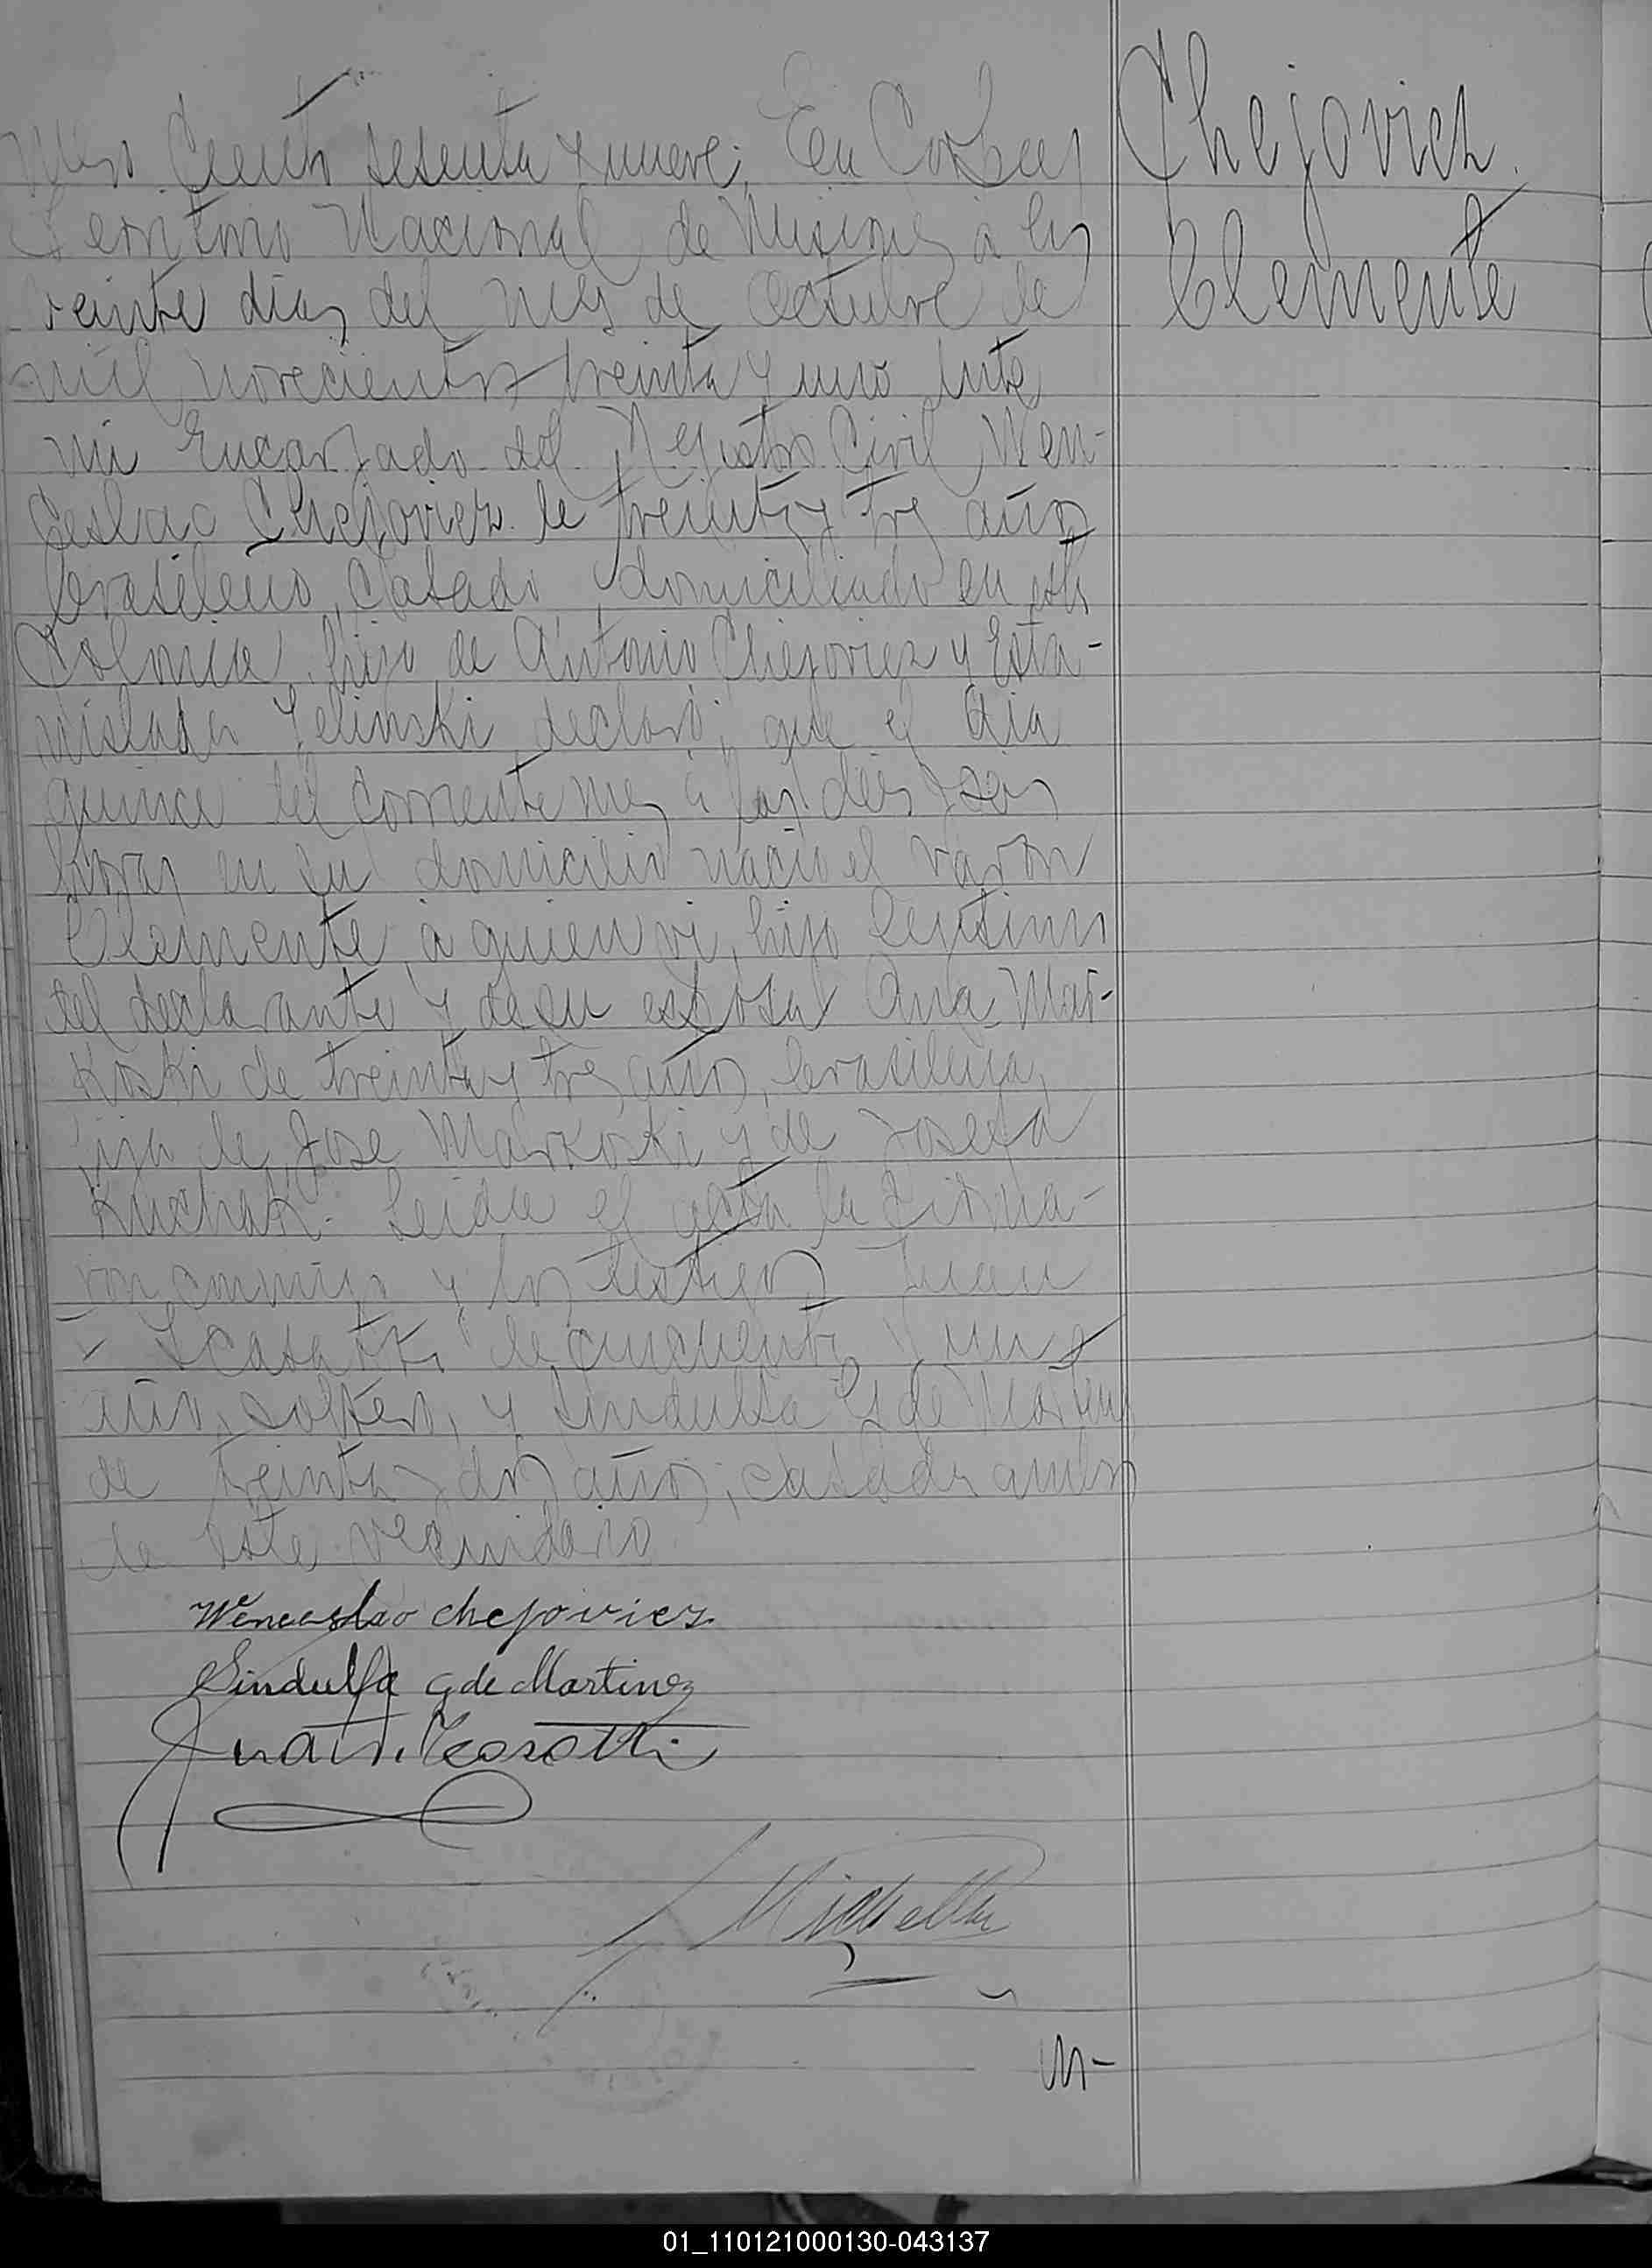 Chejoviez.
Clemente
Ciento sesenta y nueve. En Corpus
Territorio Nacional de Misiones á los
veinte dias del mes de Octubre de
mil novecientos treinta y uno ante
mi Encargado del Registro Civil, Wen-
ceslao Chejoviez de treinta y tres años
brasileno, casado, domiciliado en esta
Colonia, hijo de Antonio Chejoviez y Esta-
nislada Zelinski declaró; que el dia
quince del corriente mes á las diez y seis
horas en su domicilio nació el varón
Clemente á quien vi, hijo legitimo
del declarante y de su esposa Ana Mar-
koski de treinta y tres años, brasilena,
hija de José Markoski y de Josefa
Kuchak. Leida el acta la firma-
ron conmigo y los testigos Juan
de cincuenta y un
años, soltero, y Sindulfa G de Martinez
de treinta y dos años, casada ambos
de este vecindario
Wenceslao Chejoviez.
Sindulfa G de Martinez
Juan
M-
01_110121000130-043137